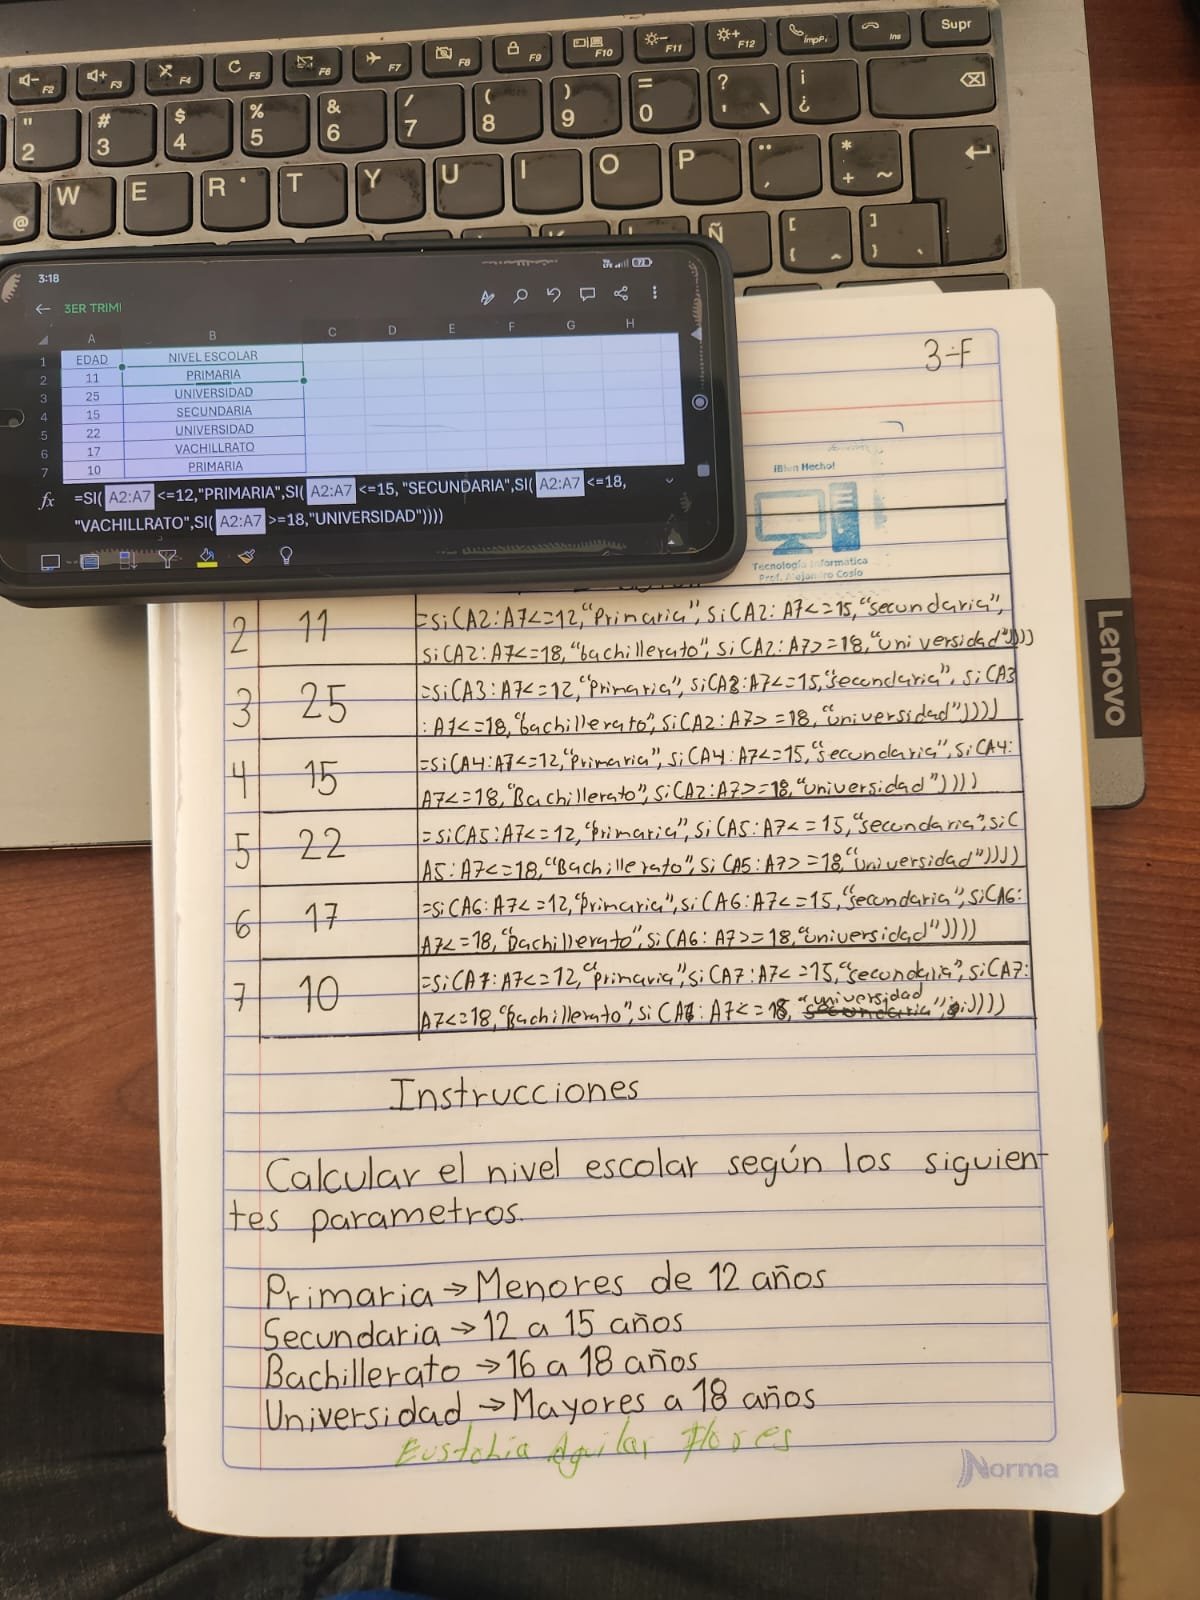 Supr
F2
F3
F4
F5
F6
F7
F8
F9
F10
F11
F12
ImpPt
Ins
" 2
# 3
$ 4
% 5
& 6
/ 7
( 8
) 9
= 0
? '
\
¡ ¿
@
W
E
R
T
Y
U
I
O
P
* + ~
Ñ
[ {
] }
3:18
72
3ER TRIMI
A B C D E F G H
1 EDAD NIVEL ESCOLAR
2 11 PRIMARIA
3 25 UNIVERSIDAD
4 15 SECUNDARIA
5 22 UNIVERSIDAD
6 17 VACHILLRATO
7 10 PRIMARIA
fx =SI( A2:A7 <=12,"PRIMARIA",SI( A2:A7 <=15, "SECUNDARIA",SI( A2:A7 <=18,
"VACHILLRATO",SI( A2:A7 >=18,"UNIVERSIDAD"))))
3-F
¡Bien Hecho!
Tecnología Informatica
Prof. Alejandro Cosio
2 11 =si(A2:A7<=12,"Primaria", si(A2:A7<=15,"secundaria",
si(A2:A7<=18,"bachillerato", si(A2:A7>=18,"universidad"))))
3 25 =si(A3:A7<=12,"Primaria", si(A3:A7<=15,"secundaria", si(A3
:A7<=18,"bachillerato", si(A2:A7>=18,"universidad"))))
4 15 =si(A4:A7<=12,"Primaria", si(A4:A7<=15,"secundaria", si(A4:
A7<=18,"Bachillerato", si(A2:A7>=18,"universidad"))))
5 22 =si(A5:A7<=12,"Primaria", si(A5:A7<=15,"secundaria", si(
A5:A7<=18,"Bachillerato", si(A5:A7>=18,"universidad"))))
6 17 =si(A6:A7<=12,"Primaria", si(A6:A7<=15,"secundaria", si(A6:
A7<=18,"bachillerato", si(A6:A7>=18,"universidad"))))
7 10 =si(A7:A7<=12,"primaria", si(A7:A7<=15,"secundaria", si(A7:
A7<=18,"Bachillerato", si(A7:A7<=18,"universidad"))))
Lenovo
Instrucciones
Calcular el nivel escolar según los siguien-
tes parametros.
Primaria → Menores de 12 años
Secundaria → 12 a 15 años
Bachillerato → 16 a 18 años
Universidad → Mayores a 18 años
Eustolia Aguilar Flores
Norma